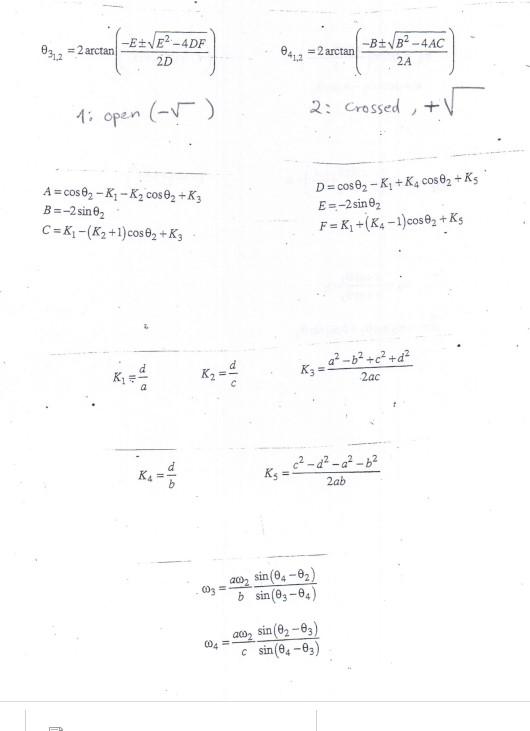 θ₃₁,₂ = 2 arctan((−E ± √(E² − 4DF)) / 2D)    θ₄₁,₂ = 2 arctan((−B ± √(B² − 4AC)) / 2A)
1: open (−√ )    2: crossed, +√
A = cosθ₂ − K₁ − K₂ cosθ₂ + K₃    D = cosθ₂ − K₁ + K₄ cosθ₂ + K₅
B = −2 sinθ₂    E = −2 sinθ₂
C = K₁ − (K₂ + 1) cosθ₂ + K₃    F = K₁ + (K₄ − 1) cosθ₂ + K₅
K₁ = d/a    K₂ = d/c    K₃ = (a² − b² + c² + d²) / 2ac
K₄ = d/b    K₅ = (c² − d² − a² − b²) / 2ab
ω₃ = (aω₂ / b) (sin(θ₄ − θ₂) / sin(θ₃ − θ₄))
ω₄ = (aω₂ / c) (sin(θ₂ − θ₃) / sin(θ₄ − θ₃))